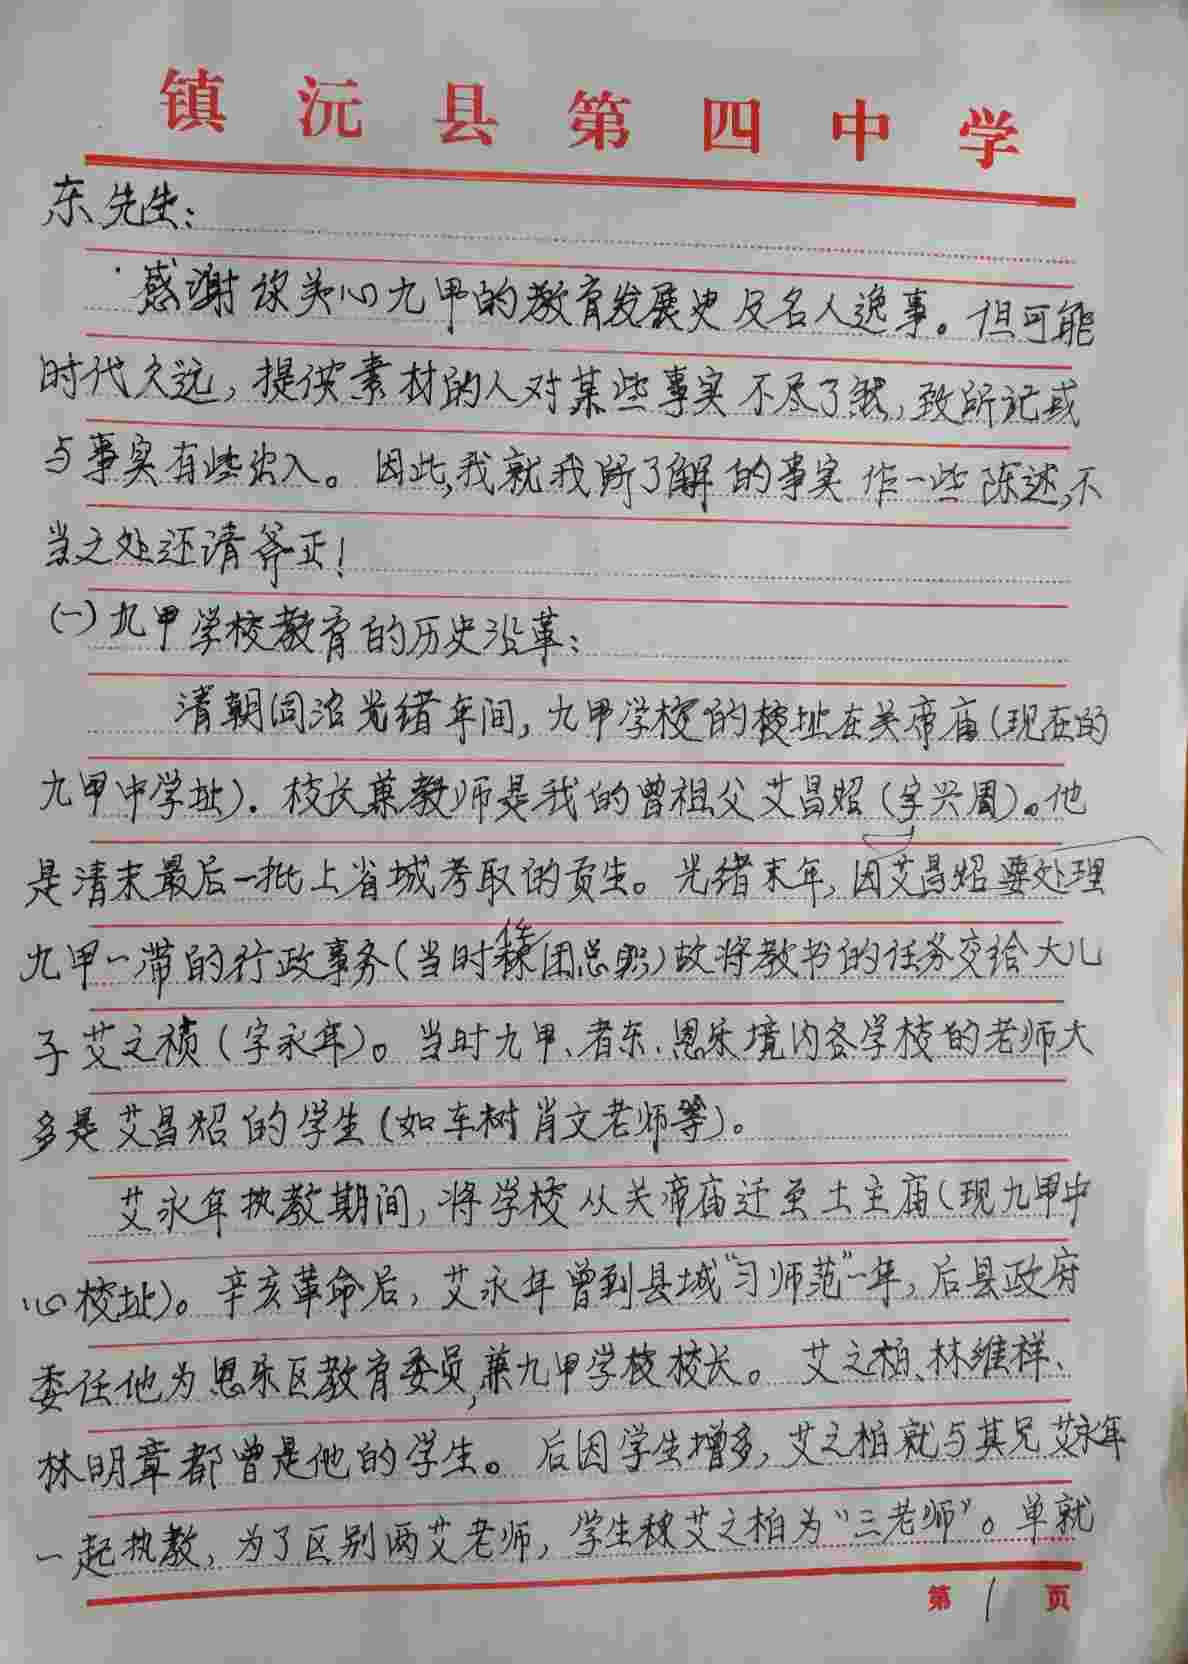 镇沅县第四中学
东先生：
感谢你关心九甲的教育发展史及名人逸事。但可能
时代久远，提供素材的人对某些事实不尽了然，致所记或
与事实有些出入。因此，我就我所了解的事实作一些陈述，不
当之处还请斧正！
(一)九甲学校教育的历史沿革：
清朝同治光绪年间，九甲学校的校址在关帝庙(现在的
九甲中学址)。校长兼教师是我的曾祖父艾昌炤(字兴周)。他
是清末最后一批上省城考取的贡生。光绪末年，因艾昌炤要处理
九甲一带的行政事务(当时称团总职)故将教书的任务交给大儿
子艾之桢(字永年)。当时九甲、者东、恩乐境内各学校的老师大
多是艾昌炤的学生(如车树肖文老师等)。
艾永年执教期间，将学校从关帝庙迁至土主庙(现九甲中
心校址)。辛亥革命后，艾永年曾到县城“习师范”一年，后县政府
委任他为恩乐区教育委员，兼九甲学校校长。艾之柏、林维祥、
林明章都曾是他的学生。后因学生增多，艾之柏就与其兄艾永年
一起执教，为了区别两艾老师，学生称艾之柏为“三老师”。单就
第1页